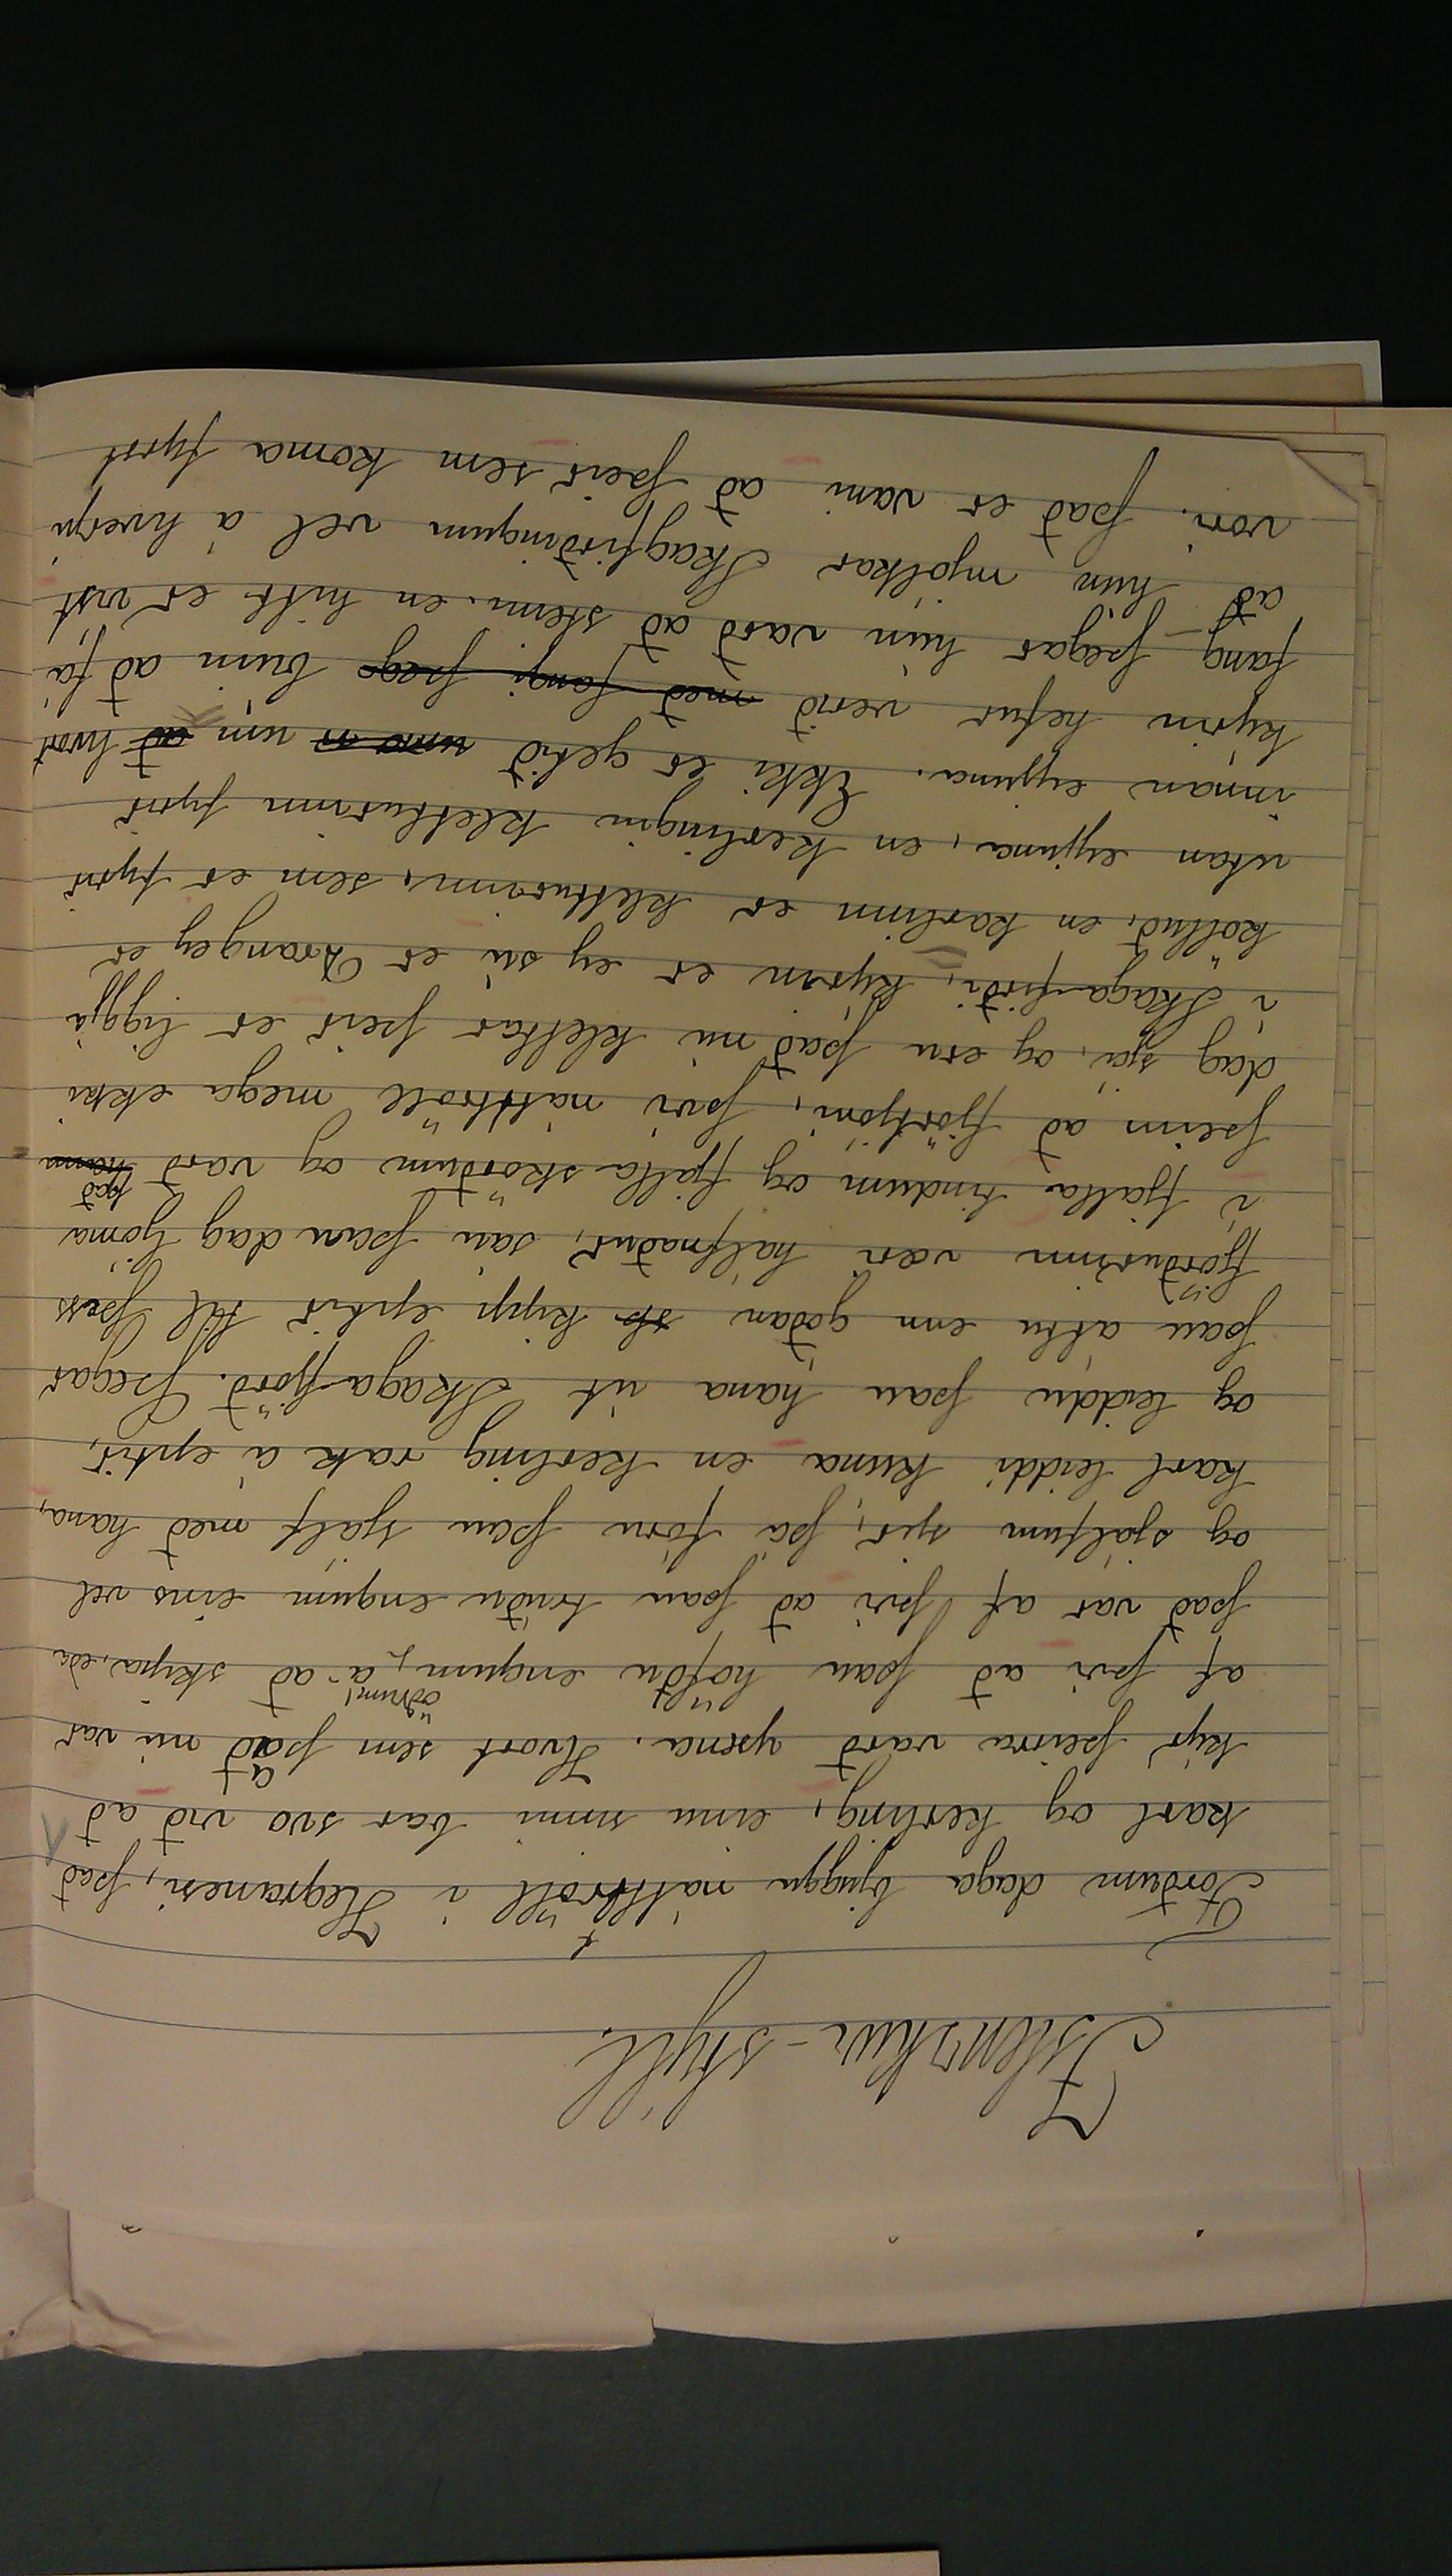 Íslenskur-stýll.
Forðum daga bjuggu nátttröll i Hegranesi, það
karl og kerling, einu sinni bar svo við að
kýr þeirra varð yxna. Hvort sem það nú var
af því að þau höfðu engum öðrum! á að skipa, eða
það var af því að þau trúðu engum eins vel
og sjálfum sjer, þá fóru þau sjálf með hana,
karl leiddi kuna en kerling rak á eptir,
og leiddu þau hana út Skaga-fjörð. Þegar
þau áttu enn góðan kipp eptir til þess
fjörðurinn væri hálfnaður, sáu þau dag ljóma
í fjalla tindum og fjalla skörðum og varð það
þeim að fjörtjóni, því nátttröll mega ekki
dag sjá, og eru það nú klettar þeir er liggja
í Skaga-firði, kýrin er ey sú er Drangey er
kölluð, en karlinn er kletturinn, sem er fyrir
utan eyjuna, en kerlingin kletturinn fyrir
innan eyjuna. Ekki er getið um að hvort
kýrin hefur verið með fangi þege búin að fá
fang þegar hún varð að steini en hitt er vist
að hún mjólkar Skagfirðingum vel á hverju
vori. það er vani að þeir sem koma fyrst